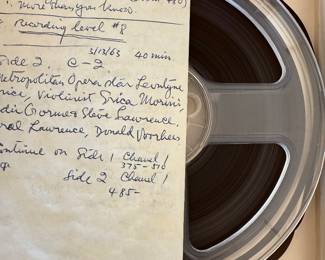 more than you know.
recording level #8
3/13/63 40 min
Side 2. C-2
Metropolitan Opera star Leontyne
Price, Violinist Erica Morini,
Edie Gorme & Steve Lawrence,
Carol Lawrence, Donald Voorhees
Continue on Side 1 Chanel 1
375-510
Side 2 Chanel 1
485-